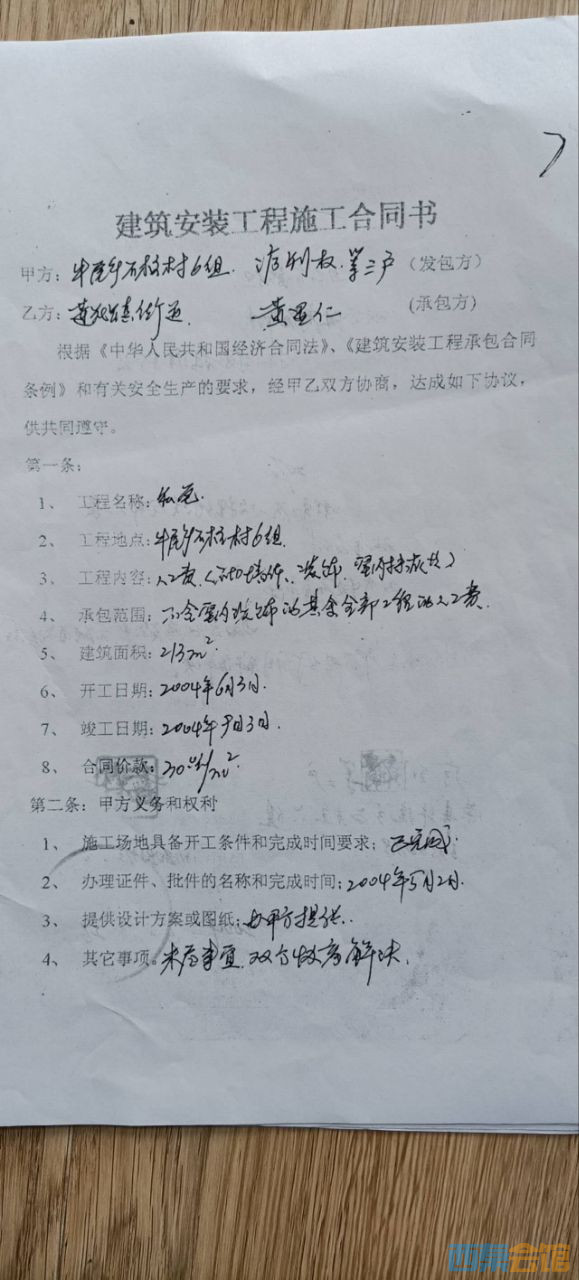 建筑安装工程施工合同书
甲方：牛尾乡石柱村6组. 权.等三户（发包方）
乙方： 黄显仁（承包方）
根据《中华人民共和国经济合同法》、《建筑安装工程承包合同
条例》和有关安全生产的要求，经甲乙双方协商，达成如下协议，
供共同遵守。
第一条：
1、 工程名称：私宅.
2、 工程地点：牛尾乡石柱村6组.
3、 工程内容：人工费
4、 承包范围：不含室内装饰的其余全部工程的人工费.
5、 建筑面积：213m²
6、 开工日期：2004年6月3日.
7、 竣工日期：2004年9月3日.
8、 合同价款：/m²
第二条：甲方义务和权利
1、 施工场地具备开工条件和完成时间要求：已完成.
2、 办理证件、批件的名称和完成时间：2004年5月2日.
3、 提供设计方案或图纸：由甲方提供.
4、 其它事项。未尽事宜.双方协商解决.
西票会馆